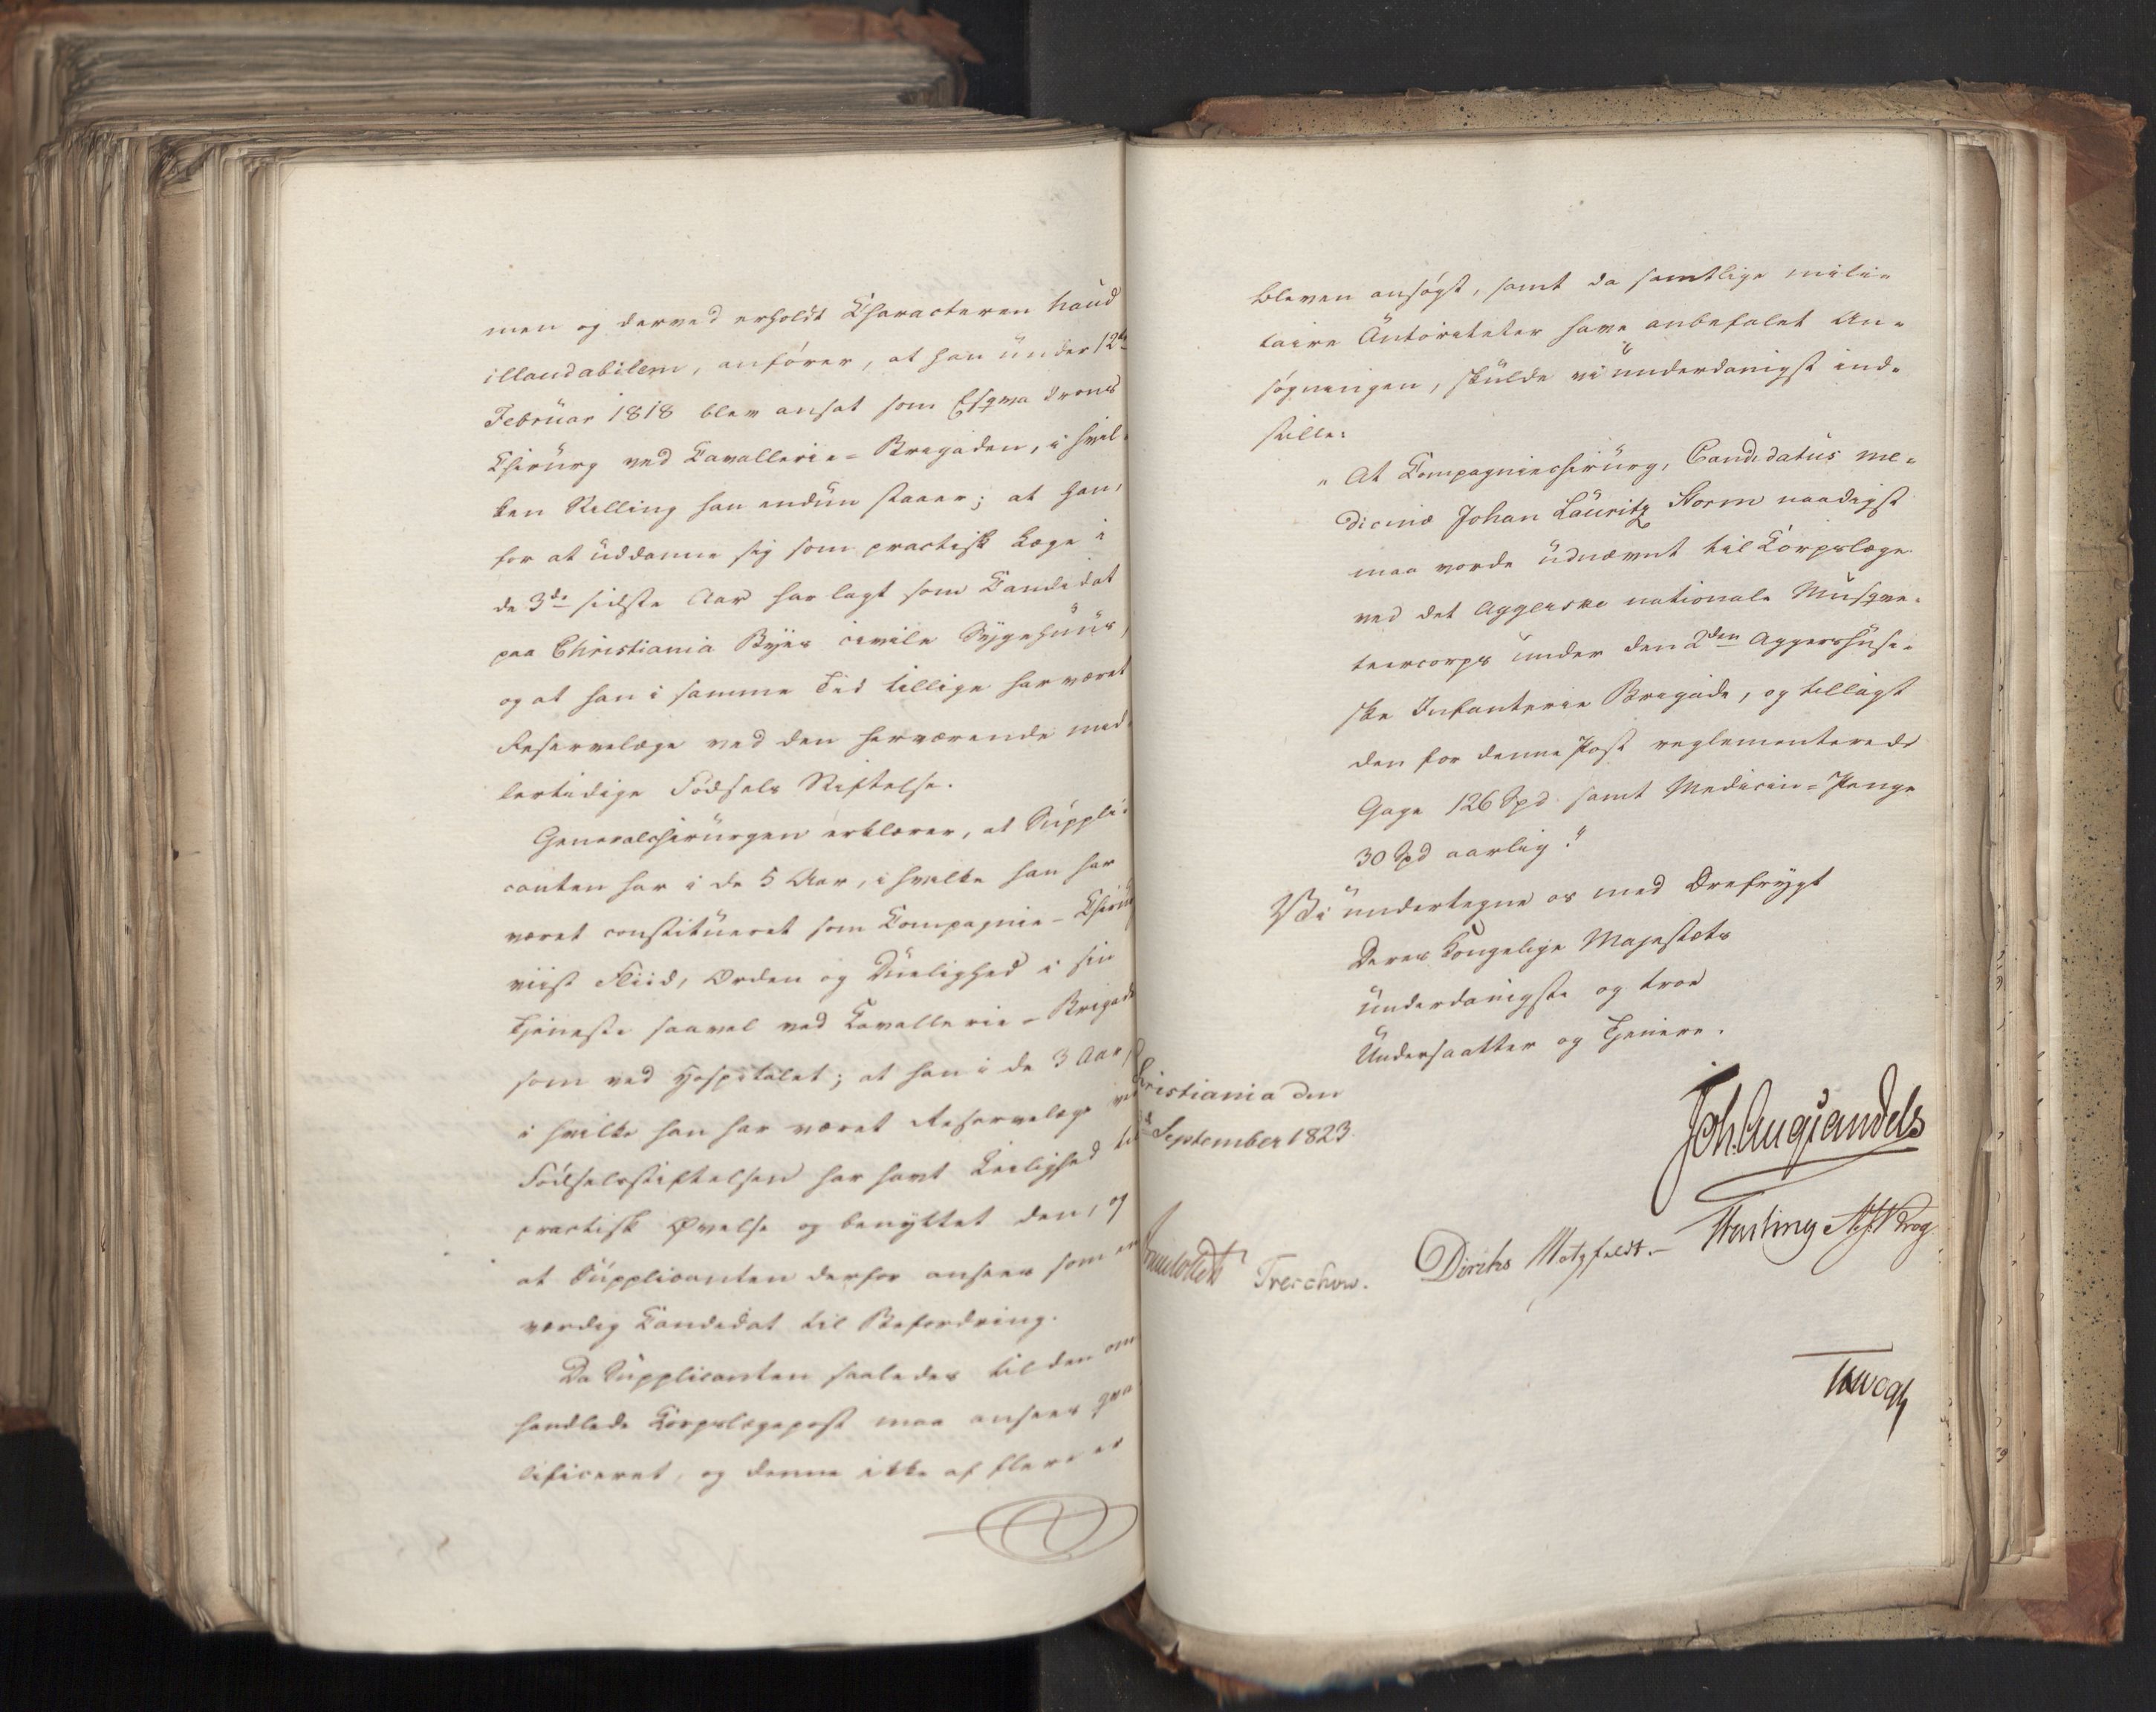 men og derved erholdt Characteren haud
illaudabilem, anfører, at han under 12te
Februar 1818 blev ansat som Esqvadrons
Chirurg ved Cavallerie-Brigaden, i hvil-
ken Stilling han endnu staaer; at han,
for at uddanne sig som practisk Læge i
de 3de sidste Aar har lagt som Candidat
paa Christiania Byes civile Sygehuus,
og at han i samme Tid tillige har været
Reservelæge ved den herværende mid-
lertidige Fødsels Stiftelse.
Generalchirurgen erklærer, at Suppli-
canten har i de 5 Aar, i hvilke han har
været constitueret som Compagnie-Chirur
viist Fliid, Orden og Duelighed i sin
Tjeneste saavel ved Cavallerie-Brigade
som ved Hospitalet; at han i de 3 Aar,
i hvilke han har været Reservelæge ved
Fødselsstiftelsen har havt Leilighed til
practisk Øvelse og benyttet den, og
at Supplicanten derfor ansees som en
værdig Candidat til Befordring.
Da Supplicanten saaledes til den om-
handlede Corpslægepost maa ansees qva-
lificeret, og denne ikke af flere er
bleven ansøgt, samt da samtlige mili-
taire Autoriteter have anbefalet An-
søgningen, skulde vi underdanigst ind-
stille:
"At Compagniechirurg, Candidatus me-
dicinæ Johan Lauritz Storm naadigst
maa vorde udnævnt til Corpslæge
ved det Aggerske nationale Musqve-
teercorps under den 2den Aggershusi-
ske Infanterie Brigade, og tillagt
den for denne Post reglementerede
Gage 126 Spd samt Medicin-Penge
30 Spd aarlig."
Vi undertegne os med Ærefrygt
Deres Kongelige Majestæts
underdanigste og troe
Undersaatter og Tjenere.
Christiania den
September 1823
Joh. Aug. Sandels
Treschow. Diriks Motzfeldt.- Fasting Krog